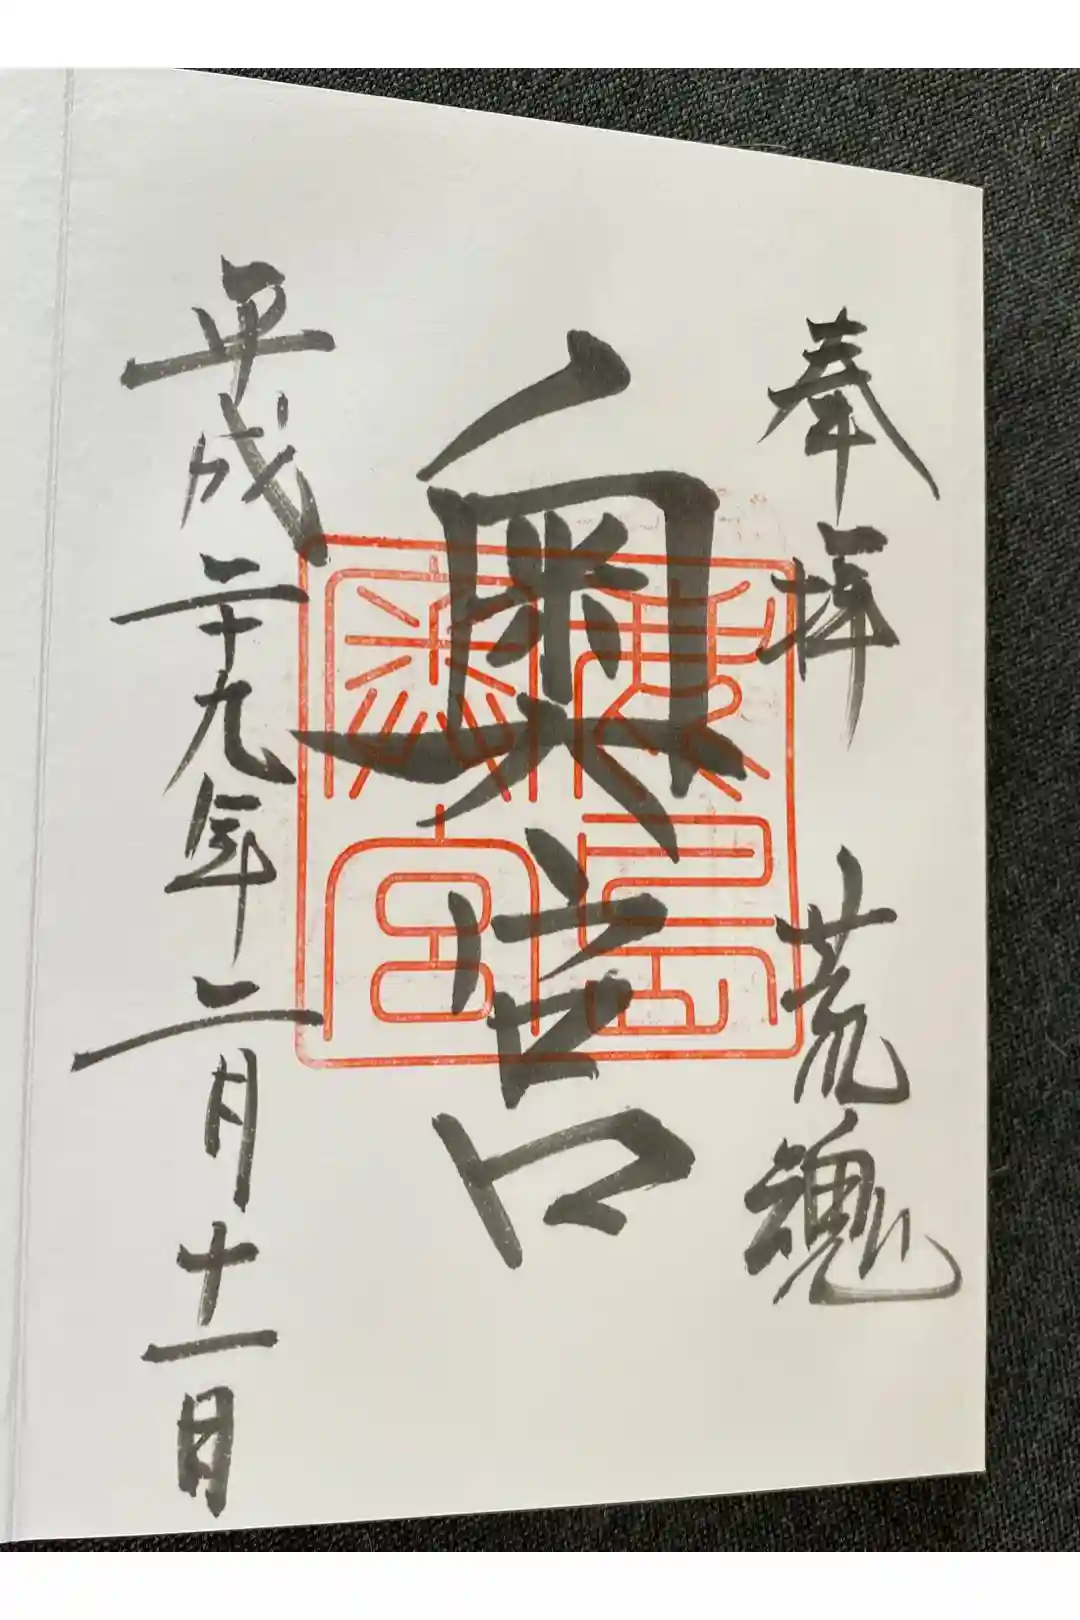 奉拝　荒魂
奥宮
鹿島
奥宮
平成二十九年二月十一日